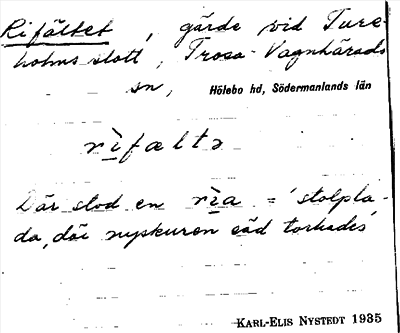 Rifältet, gärde vid Ture-
holms slott, Trosa-Vagnhärads
sn, Hölebo hd, Södermanlands län
rìfæltə
Där stod en rìa = 'stolpla-
da, där nyskuren säd torkades'
KARL-ELIS NYSTEDT 1935